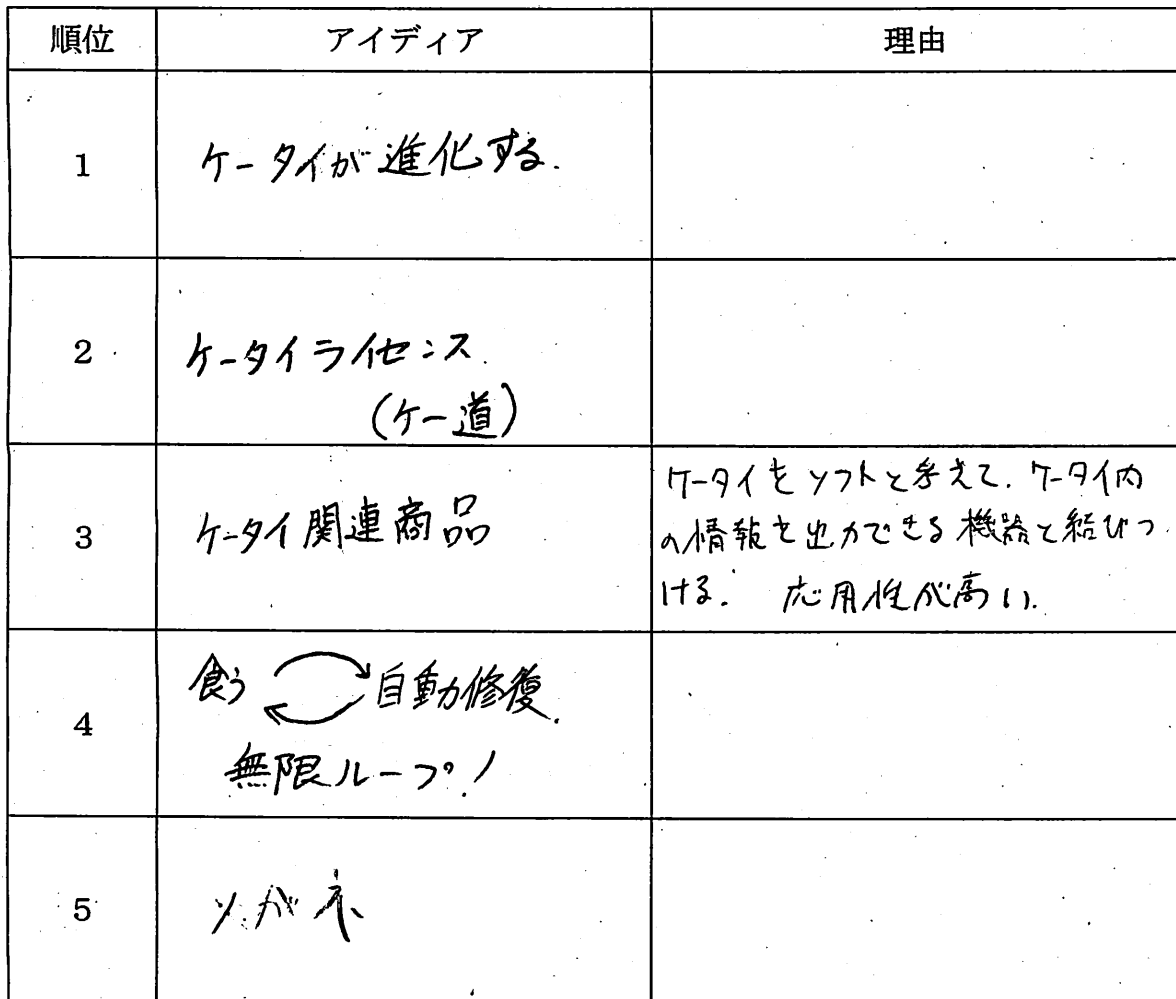 順位 アイディア 理由
1 ケータイが進化する.
2 ケータイライセンス.
(ケー道)
3 ケータイ関連商品
ケータイをソフトと考えて.ケータイ内
の情報を出力できる機器と結びつ
ける. 応用性が高い.
4 食う 自動修復.
無限ループ!
5 メガネ